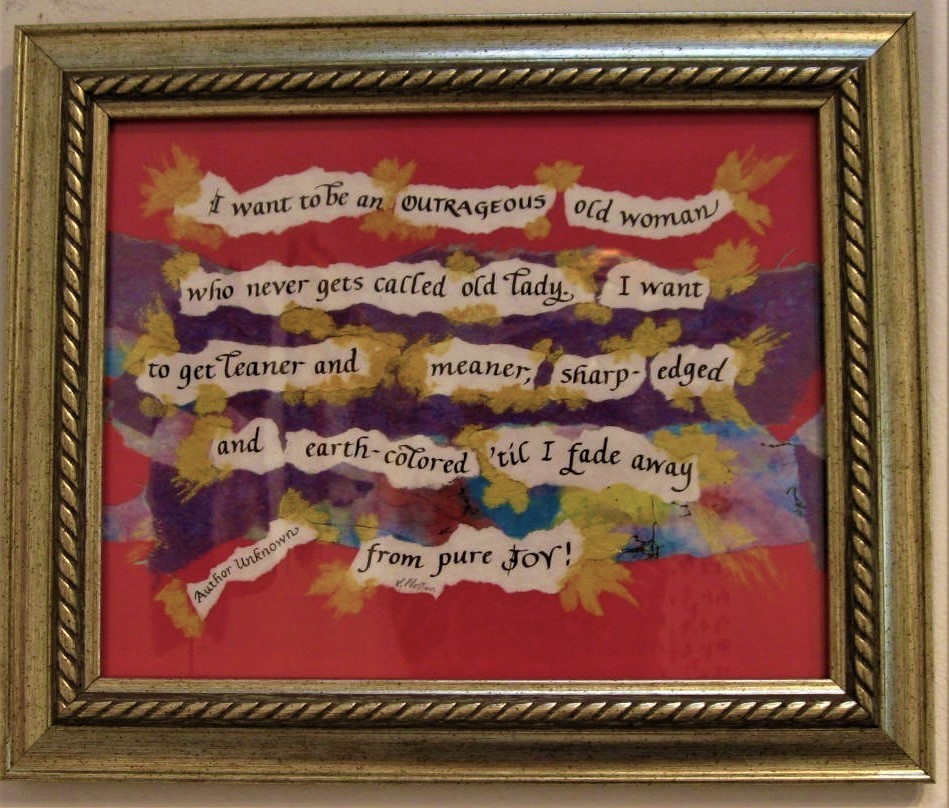 I want to be an OUTRAGEOUS old woman
who never gets called old lady. I want
to get leaner and meaner, sharp-edged
and earth-colored 'til I fade away
from pure JOY!
Author Unknown